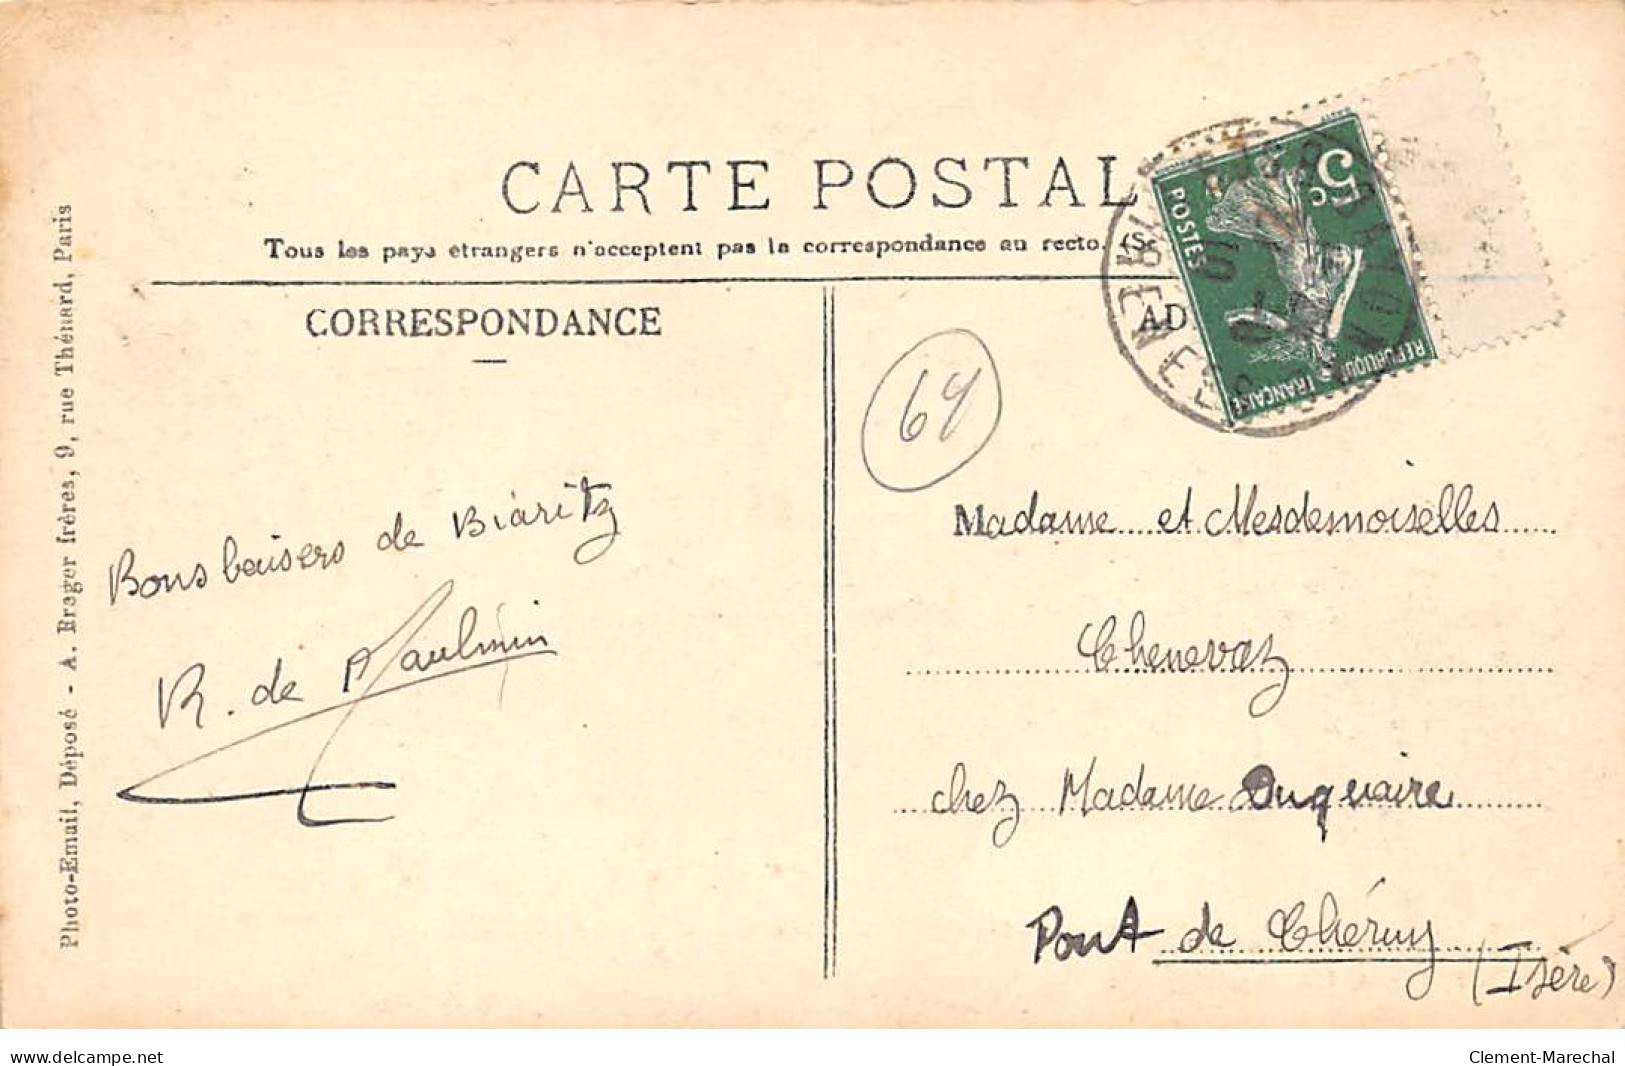 CARTE POSTAL
Tous les pays étrangers n'acceptent pas la correspondance au recto. (Se
CORRESPONDANCE
AD
5c
POSTES
REPUBLIQUE FRANÇAISE
64
Bons baisers de Biaritz
R. de
Madame et Mesdemoiselles
Chenevaz
chez Madame Duquaire
Pont de Chéruy
(Isère)
Photo-Email, Déposé - A. Breger frères, 9, rue Thénard, Paris
www.delcampe.net
Clement-Marechal